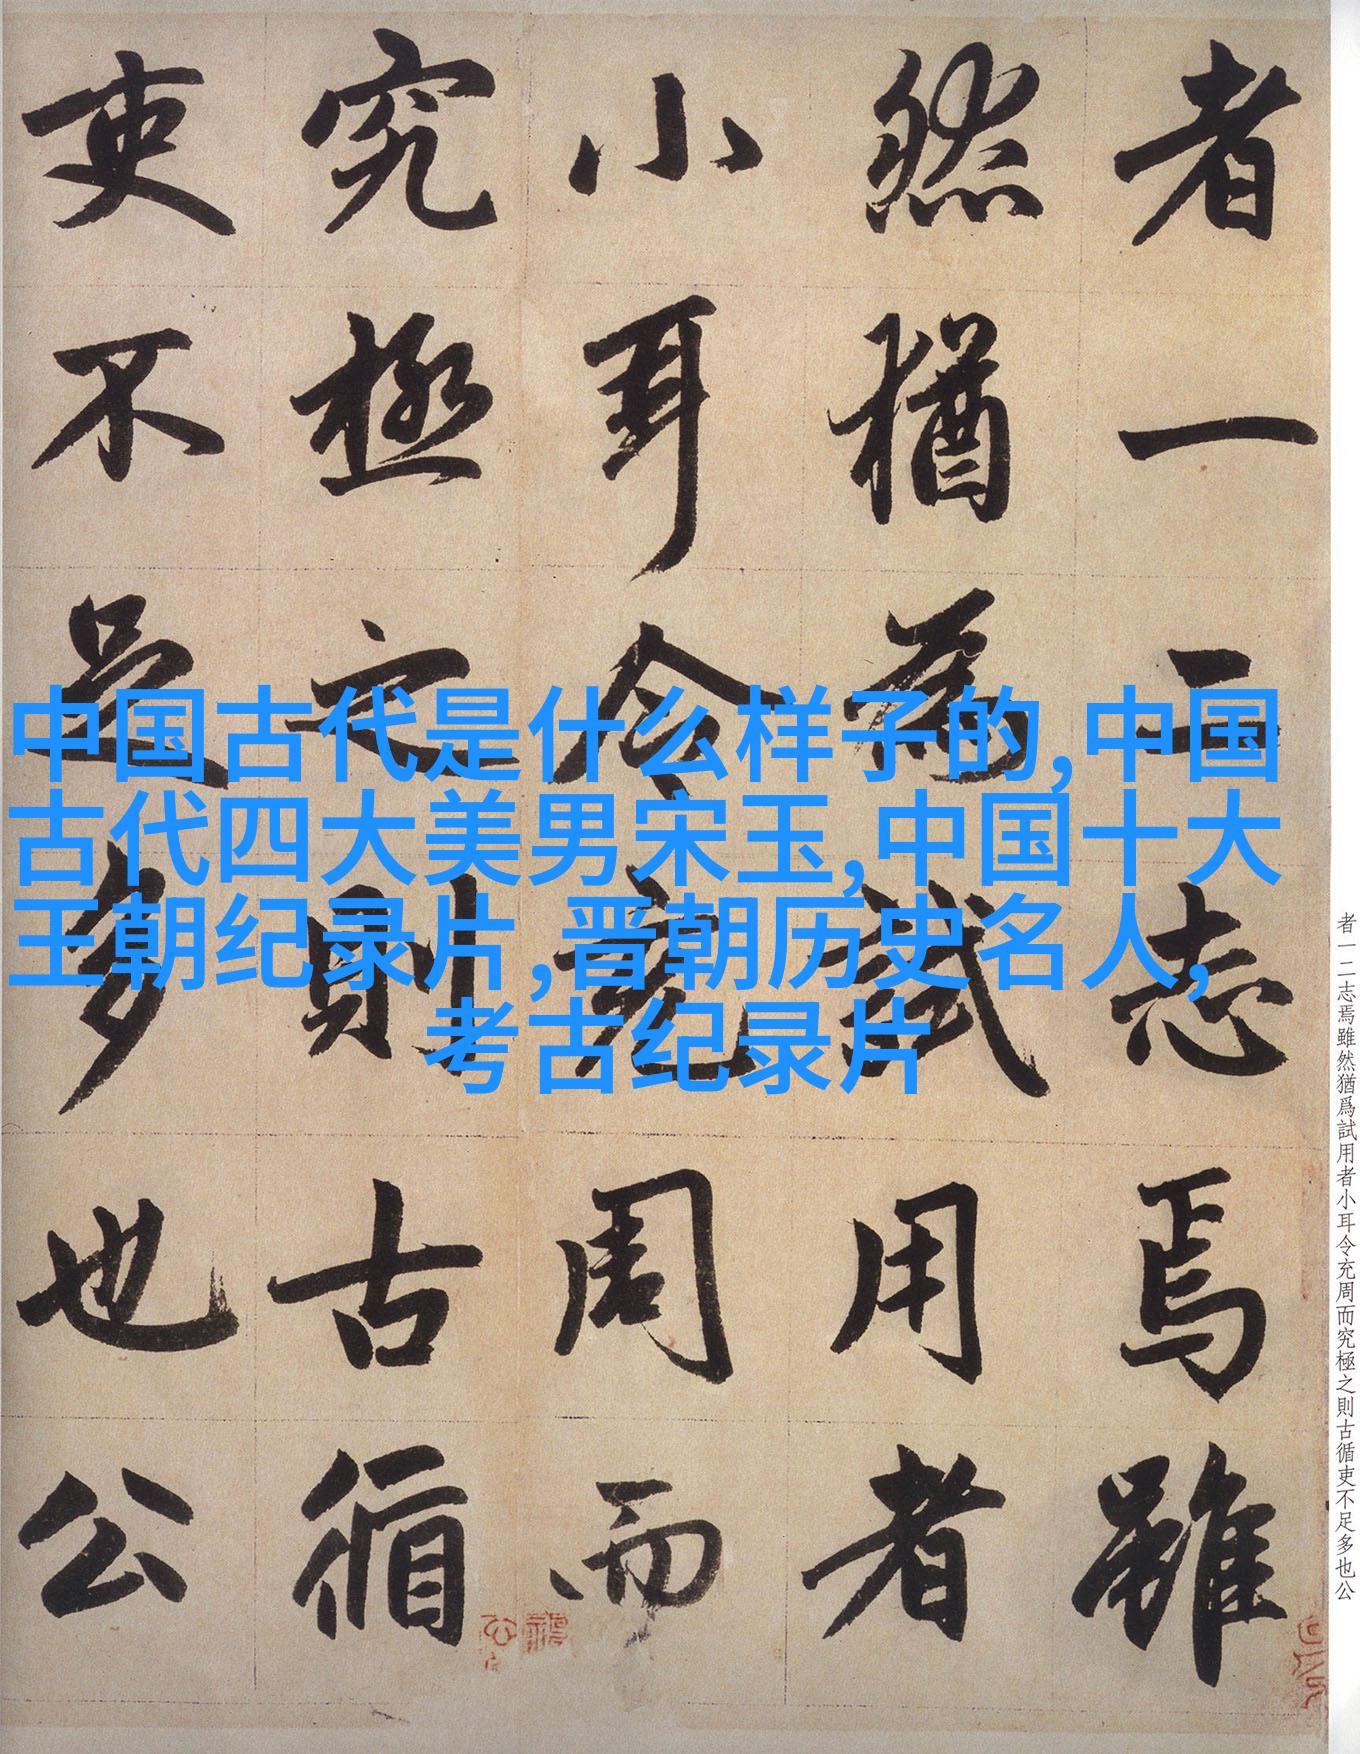 者一二志焉雖
然猶為試用者
小耳令充周而
究極之則古循
吏不足多也公
中国古代是什么样子的,中国
古代四大美男宋玉,中国十大
王朝纪录片,晋朝历史名人,
考古纪录片
者一二志焉雖然猶爲試用者小耳令充周而究極之則古循吏不足多也公